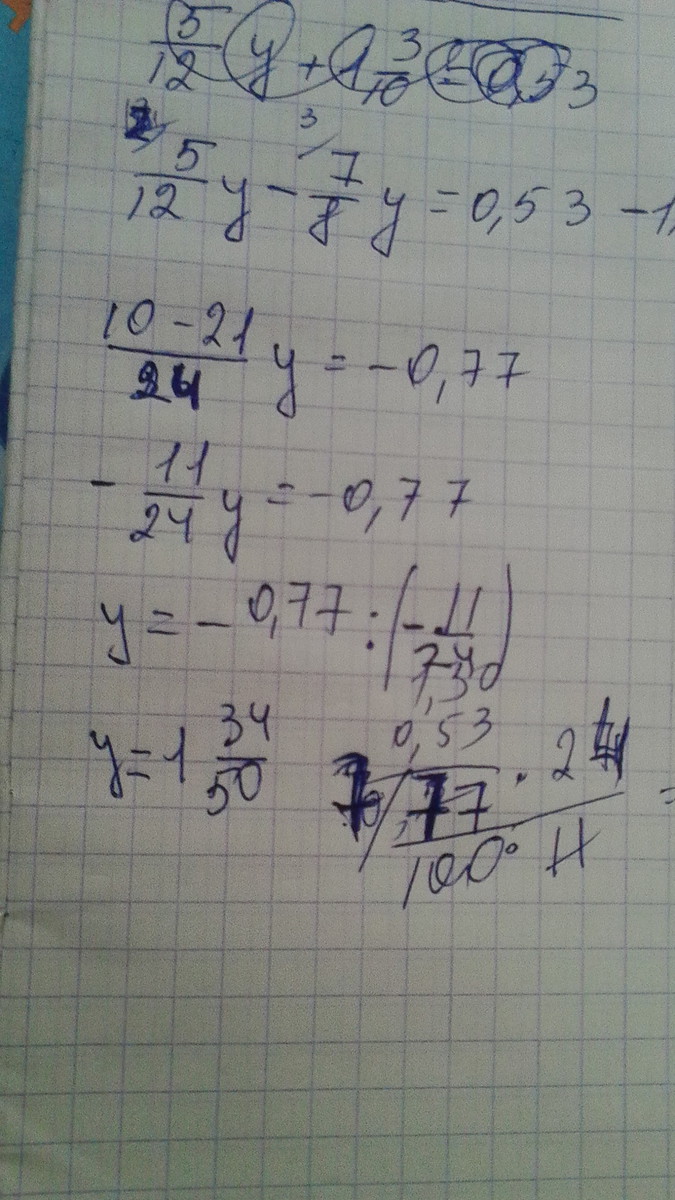 5/12 y + 1 3/10 = 0,53
5/12 y - 3/ 7/8 y = 0,53 - 1,
10 - 21 / 24 y = - 0,77
- 11/24 y = - 0,77
y = - 0,77 : (- 11/24)
1,30
0,53
y = 1 34/50
77 · 24 / 100 · 11 =